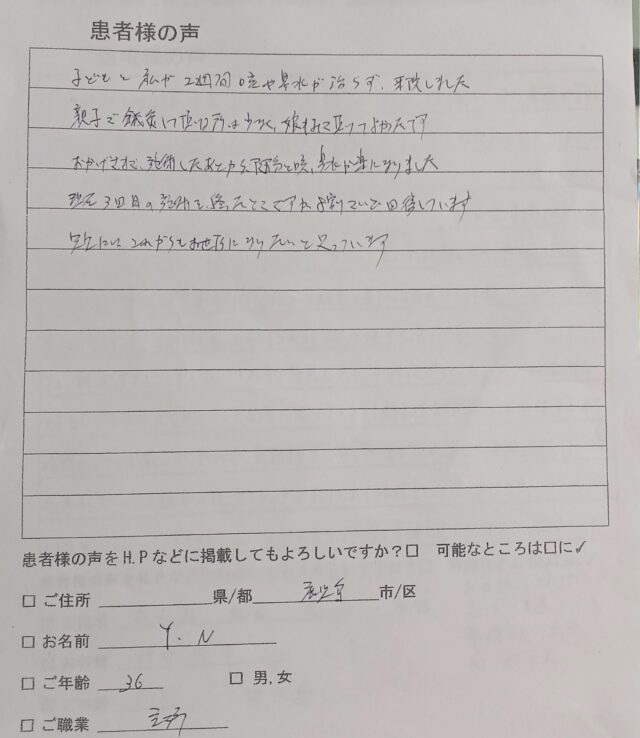 患者様の声
子どもと私が2週間咳や鼻水が治らず、来院しました
親子で鍼灸して頂ける所は少なく、娘もみて頂けてよかったです
おかげさまで、施術したあとから随分と咳、鼻水が楽になりました
現在3回目の施術を終えたところですが、続けていて回復しています
先生にはこれからもお世話になりたいと思っています
患者様の声をH.Pなどに掲載してもよろしいですか?□ 可能なところは□に✓
□ ご住所 県/都 市/区
□ お名前 Y.N
□ ご年齢 36 □ 男,女
□ ご職業 主婦